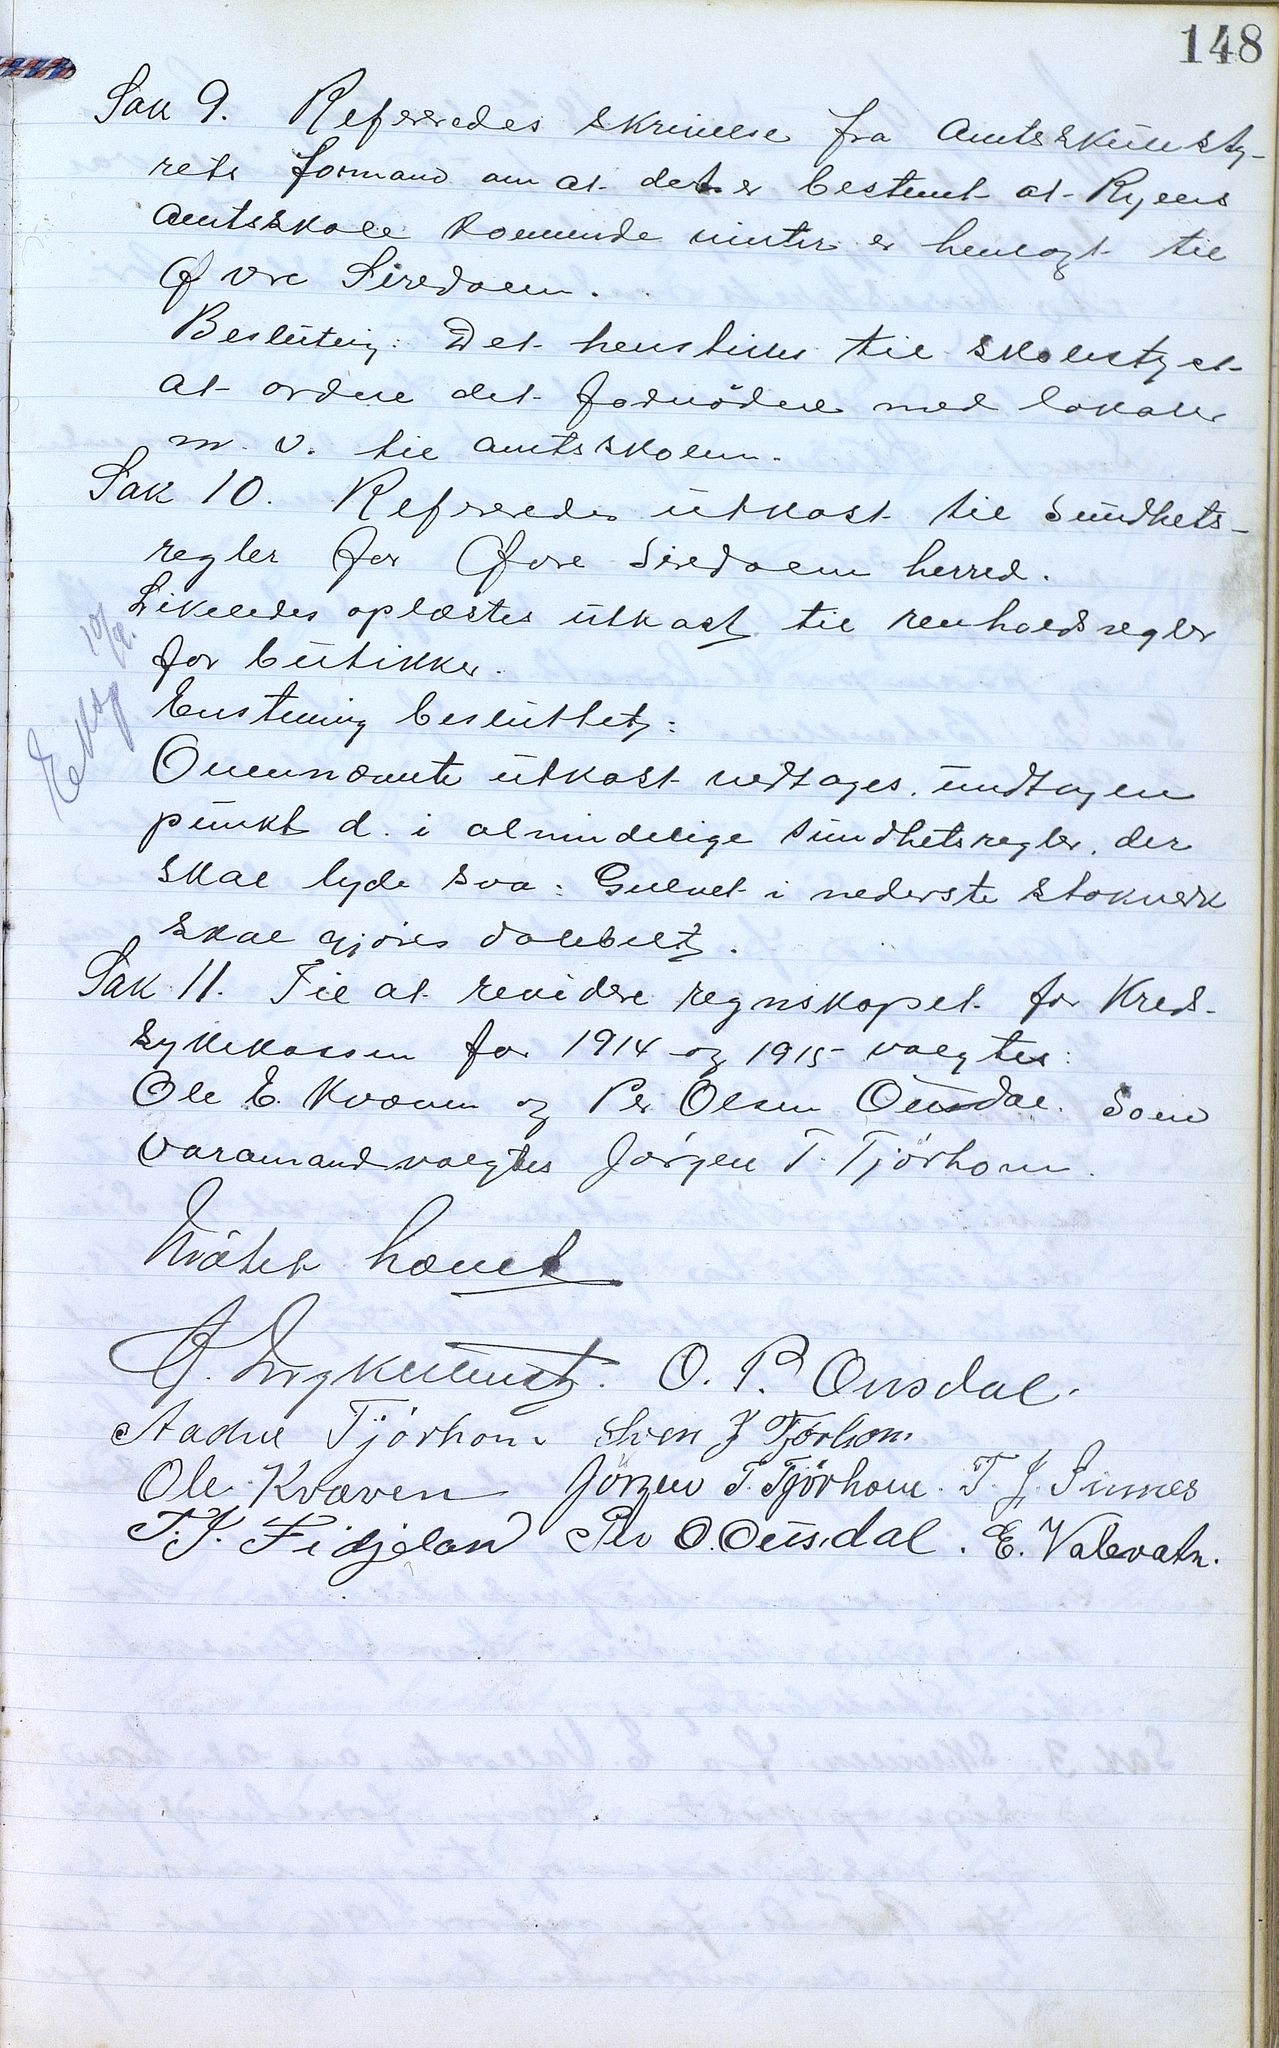 148
Sak 9. Refereredes skrivelse fra Amtsskulesty-
rets formand om at det er bestemt at Ryens
Amtsskole kommende vinter er henlagt til
Øvre Siredalen.
Beslutning: Det henstilles til skolestyret
at ordne det fodnødne med lokaler
m. v. til amtsskolen.
Sak 10. Refereredes utkast til Sundhets-
regler for Øvre Siredalen herred.
Likeledes oplæstes utkast til renholdsregler
for butikker.
Enstemmig besluttet:
Ovennævnte utkast vedtages, undtagen
punkt d. i almindelige sundhetsregler, der
skal lyde saa: Gulvet i nederste stokverk
skal gjøres dobbelt.
Eksp 10/9.
Sak 11. Til at revidere regnskapet for Kreds-
sykekassen for 1914 og 1915 valgtes:
Ole E. Kvæven og Per Olsen Ousdal. Som
varamand valgtes Jørgen T. Tjørhom.
Møtet hævet
O. P. Ousdal.
Aadne Tjörhom Sven J Tjørhom.
Ole Kvæven Jörgen T. Tjörhom. T. J. Sinnes
T. J. Fidjeland Per O. Ousdal. E. Valevatn.